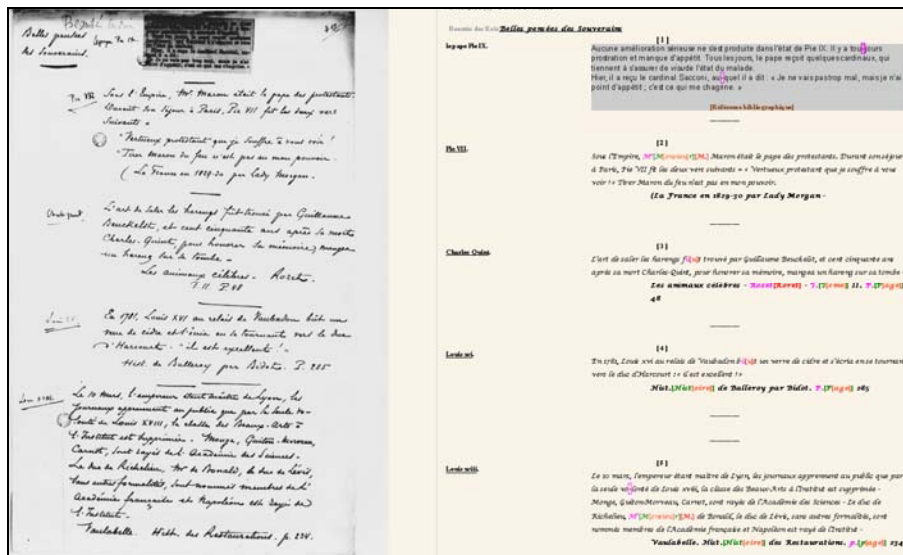 Belles pensées
des Souverains.
Pie VII. Sous l'Empire, Mr. Maron était le pape des protestants.
Durant son séjour à Paris, Pie VII fit les deux vers
suivants =
"Vertueux protestant que je souffre à vous voir!
"Tirer Maron du feu n'est pas en mon pouvoir.
(La France en 1829-30 par Lady Morgan.
L'art de saler les harengs fut trouvé par Guillaume
Beuckelst, et cent cinquante ans après sa mort
Charles-Quint, pour honorer sa mémoire, mangea
un hareng sur sa tombe -
Les animaux célèbres - Roret.
T. II P. 48
En 1781, Louis XVI au relais de Vaubadon but un
verre de cidre et s'écria en se tournant vers le duc
d'Harcourt : "il est excellent!"
Hist. de Balleroy par Bidot. P. 265
Le 10 Mars, l'empereur étant maître de Lyon, les
journaux apprennent au public que par la seule vo-
lonté de Louis XVIII, la classe des Beaux-Arts à
l'Institut est supprimée - Monge, Guiton-Morveau,
Carnot, sont rayés de l'Académie des Sciences -
Le duc de Richelieu, Mr de Bonald, le duc de Lévis,
sans autres formalités, sont nommés membres de l'
Académie française et Napoléon est rayé de
l'Institut -
Vaulabelle. Hist. des Restaurations. p. 234.
Belles pensées des Souverains
[1]
le pape Pie IX.
Aucune amélioration sérieuse ne s'est produite dans l'état de Pie IX. Il y a toujours
prostration et manque d'appétit. Tous les jours, le pape reçoit quelques cardinaux, qui
tiennent à s'assurer de visu de l'état du malade.
Hier, il a reçu le cardinal Sacconi, auquel il a dit : « Je ne vais pas trop mal, mais je n'ai
point d'appétit ; c'est ce qui me chagrine. »
[Référence bibliographique]
[2]
Pie VII.
Sous l'Empire, Mr[M[onsieur]][M.] Maron était le pape des protestants. Durant son séjour
à Paris, Pie VII fit les deux vers suivants = « Vertueux protestant que je souffre à vous
voir ! » Tirer Maron du feu n'est pas en mon pouvoir.
(La France en 1829-30 par Lady Morgan -
[3]
Charles Quint.
L'art de saler les harengs fû[u]t trouvé par Guillaume Beuckelst, et cent cinquante ans
après sa mort Charles-Quint, pour honorer sa mémoire, mangea un hareng sur sa tombe -
Les animaux célèbres - Roret[Roret] - T.[T[ome]] II. P.[P[age]]
48
[4]
Louis xvi.
En 1781, Louis xvi au relais de Vaubadon bû[u]t un verre de cidre et s'écria en se tournant
vers le duc d'Harcourt : « il est excellent ! »
Hist.[Hist[oire]] de Balleroy par Bidot. P.[P[age]] 265
[5]
Louis xviii.
Le 10 mars, l'empereur étant maître de Lyon, les journaux apprennent au public que par
la seule volonté de Louis xviii, la classe des Beaux-Arts à l'Institut est supprimée -
Monge, Guiton-Morveau, Carnot, sont rayés de l'Académie des Sciences - Le duc de
Richelieu, Mr[M[onsieur]][M.] de Bonald, le duc de Lévis, sans autres formalités, sont
nommés membres de l'Académie française et Napoléon est rayé de l'Institut -
Vaulabelle. Hist.[Hist[oire]] des Restaurations. p.[p[age]] 234